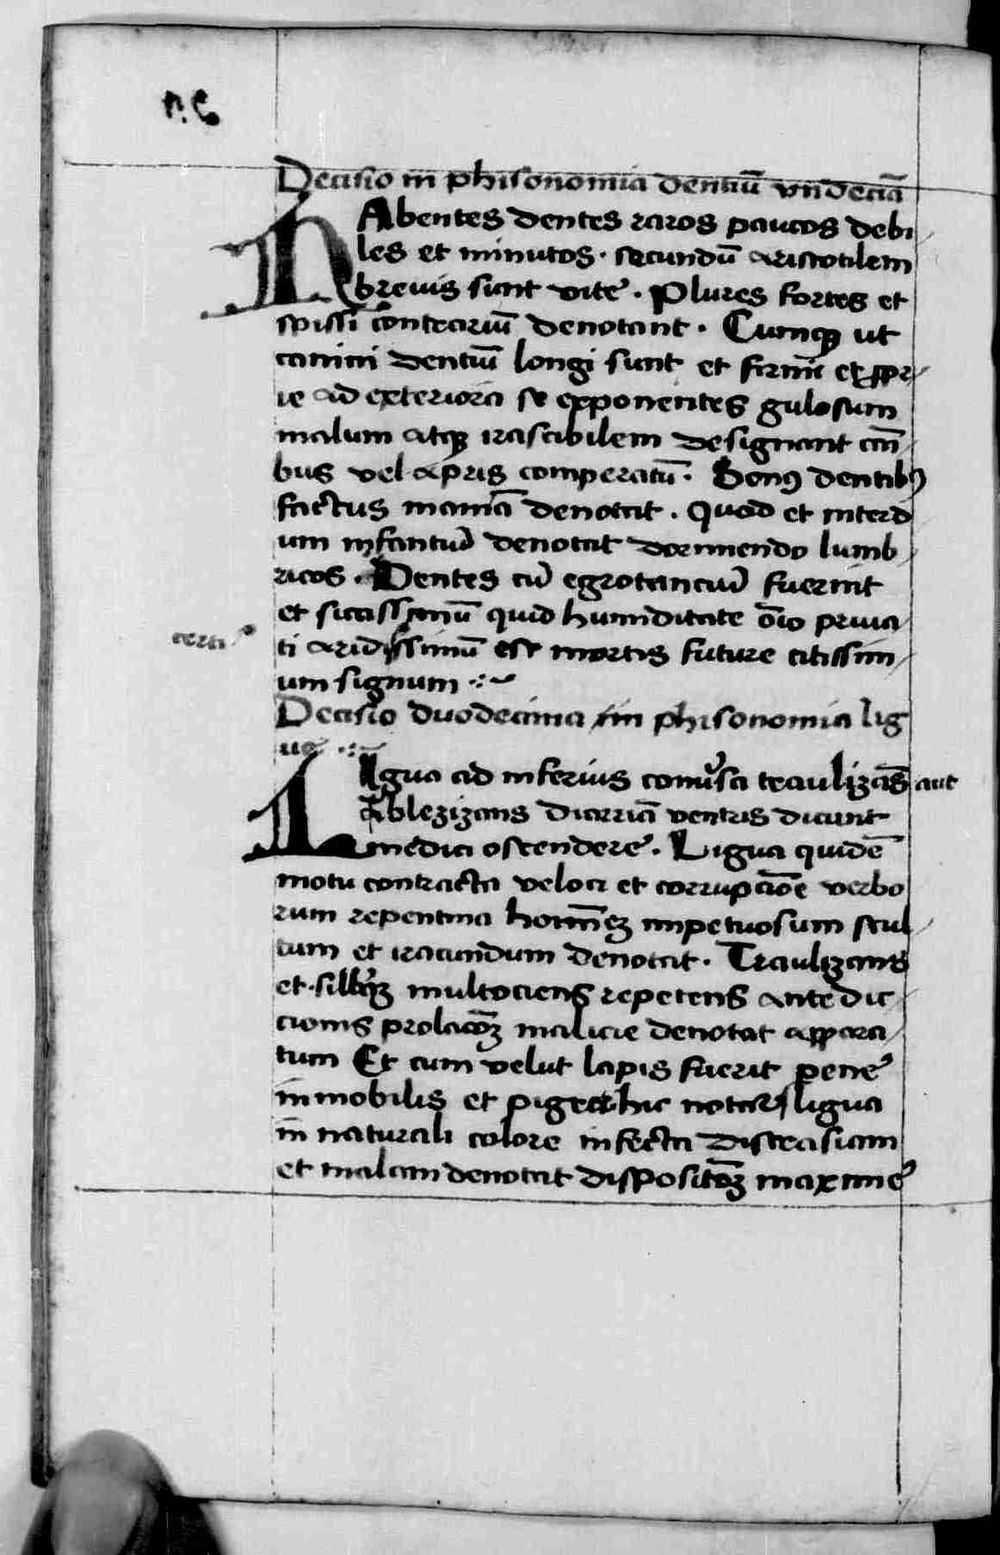 Decisio in phisonomia dentiū vndecīa
HAbentes dentes raros paucos debi
les et minutos · secundū aristotilem
brevis sunt vite . Plures fortes et
spissi contrariū denotant . Cumqȝ ut
canini dentiū longi sunt et firmi et
ie ad exteriora se exponentes gulosum
malum atqȝ irascibilem designant cāi
bus vel apris comperatū . Sonꝰ dentibꝰ
factus maniā denotat . Quod et interd
um infantiū denotat dormiendo lumb
ricos . Dentes cū egrotanciū fuerint
et siccissimū quid humiditate oīo priua
certi
ti aridissimū est mortis future citissim
um signum
Decisio duodecima in phisonomia lig
ue
LIgua ad inferius conuersa traulizās aut
blezizans diarriā ventris dicunt
medici ostendere . Ligua quidē
motu contracta veloci et corrupcioē verbo
rum repentina homīeȝ impetuosum stul
tum et iracundum denotat . Traulizans
et multociens repetens ante dic
cionis prolacōȝ malicie denotat appara
tum Et cum velut lapis fuerit pene
inmobilis et hic ligua
in naturali colore infecta discrasiam
et malam denotat dispositōȝ maxime